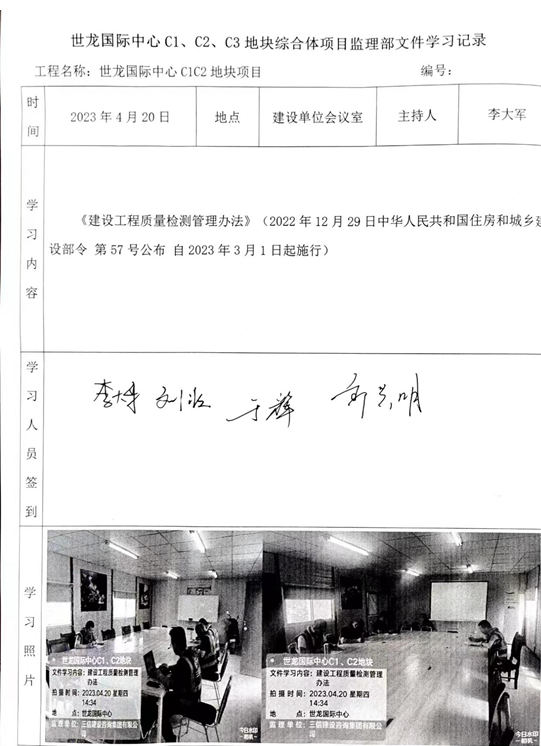 世龙国际中心 C1、C2、C3 地块综合体项目监理部文件学习记录
工程名称：世龙国际中心 C1C2 地块项目 编号：
时间 2023 年 4 月 20 日 地点 建设单位会议室 主持人 李大军
学习内容
《建设工程质量检测管理办法》（2022 年 12 月 29 日中华人民共和国住房和城乡建
设部令 第 57 号公布 自 2023 年 3 月 1 日起施行）
学习人员签到
李大军 于辉
学习照片
世龙国际中心C1、C2地块
文件学习内容：建设工程质量检测管理
办法
拍摄时间：2023.04.20 星期四
14:34
地 点：世龙国际中心
监理单位：三信建设咨询集团有限公司
今日水印
相机
世龙国际中心C1、C2地块
文件学习内容：建设工程质量检测管理
办法
拍摄时间：2023.04.20 星期四
14:34
地 点：世龙国际中心
监理单位：三信建设咨询集团有限公司
今日水印
相机